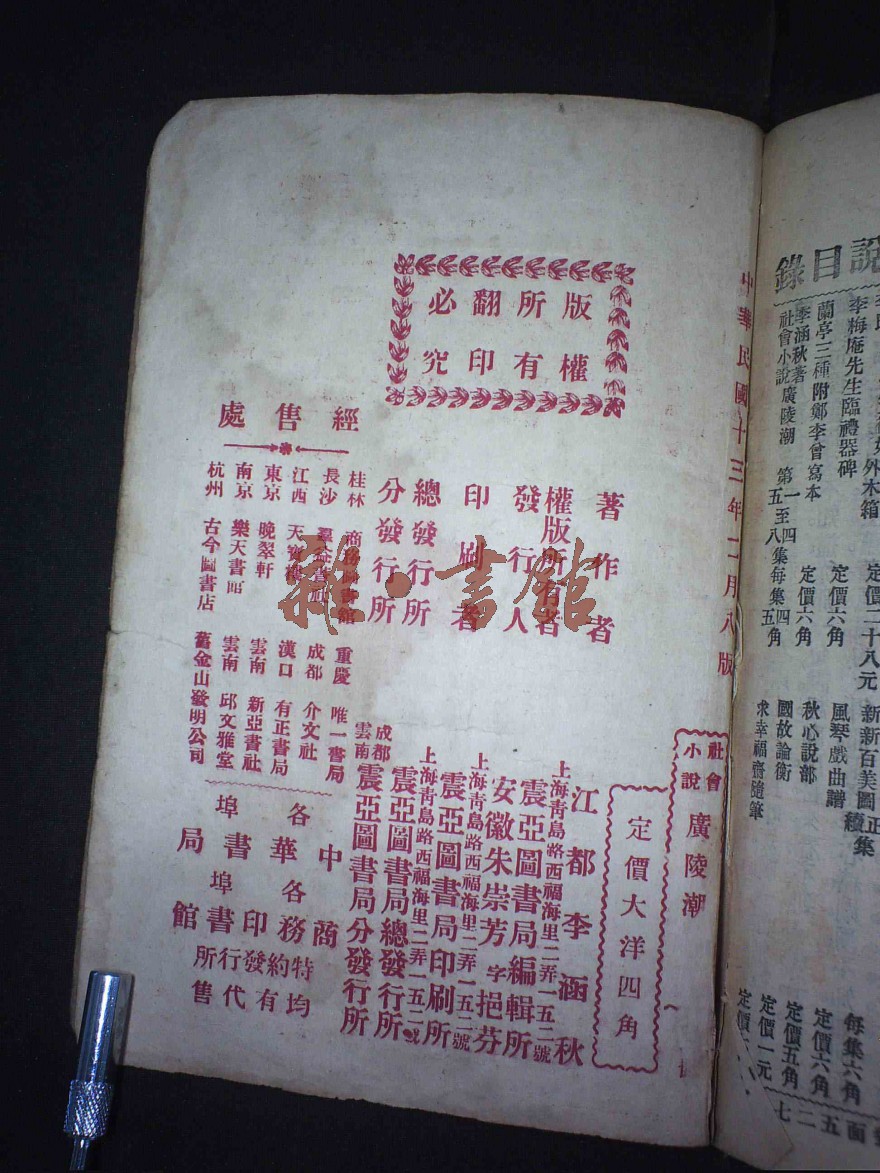 版權
所有
翻印
必究
中華民國十三年二月八版
社會
小說
廣陵潮
定價大洋四角
著作者
江都李涵秋
權版所有者
上海青島路西福海里二弄一五二號
震亞圖書局編輯所
發行人
安徽朱崇芳字挹芬
印刷者
上海青島路西福海里二弄一五二號
震亞圖書局印刷所
總發行所
上海青島路西福海里二弄一五二號
震亞圖書局總發行所
分發行所
成都
雲南
震亞圖書局分發行所
經售處
桂林 商務圖書館
長沙 羣益書社
江西
東京 晚翠軒
南京 樂天書館
杭州 古今圖書店
重慶 唯一書局
成都 介文社
漢口 有正書局
雲南 新亞書社
雲南 邱文雅堂
舊金山發明公司
各埠中華書局
各埠商務印書館
特約發行所
均有代售
說目錄
李梅庵先生臨禮器碑 定價六角
蘭亭三種附鄭李曾寫本 定價六角
李涵秋著
社會小說廣陵潮 第一至四集每集四角
五至八集每集五角
外木箱 定價二十八元
新新百美圖正續集 每集六角
風琴戲曲譜 定價六角
秋心說部 定價五角
國故論衡 定價一元
求幸福齋隨筆 定價
面五二七
雜·書館